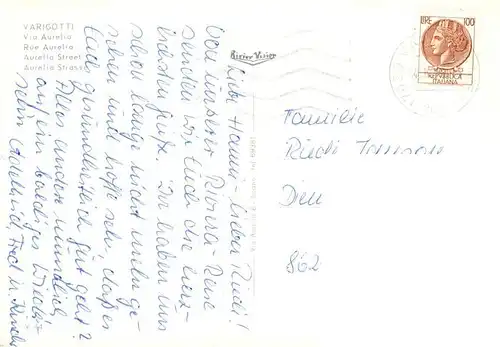 VARIGOTTI
Via Aurelia
Rue Aurelia
Aurelia Street
Aurelia Strasse
LIRE 100
REPVBBLICA
ITALIANA
Liebe Hanni - lieber Ruedi!
Von unserer Riviera-Reise
senden wir Euch die herz-
lichsten Grüße. Wir haben uns
schon lange nicht mehr ge-
sehen und hoffe sehr, daß es
Euch gesundheitlich gut geht?
Alles andere mündlich,
auf ein baldiges Wieder-
sehn Adelheid, Fred u.
Familie
Ruedi
862